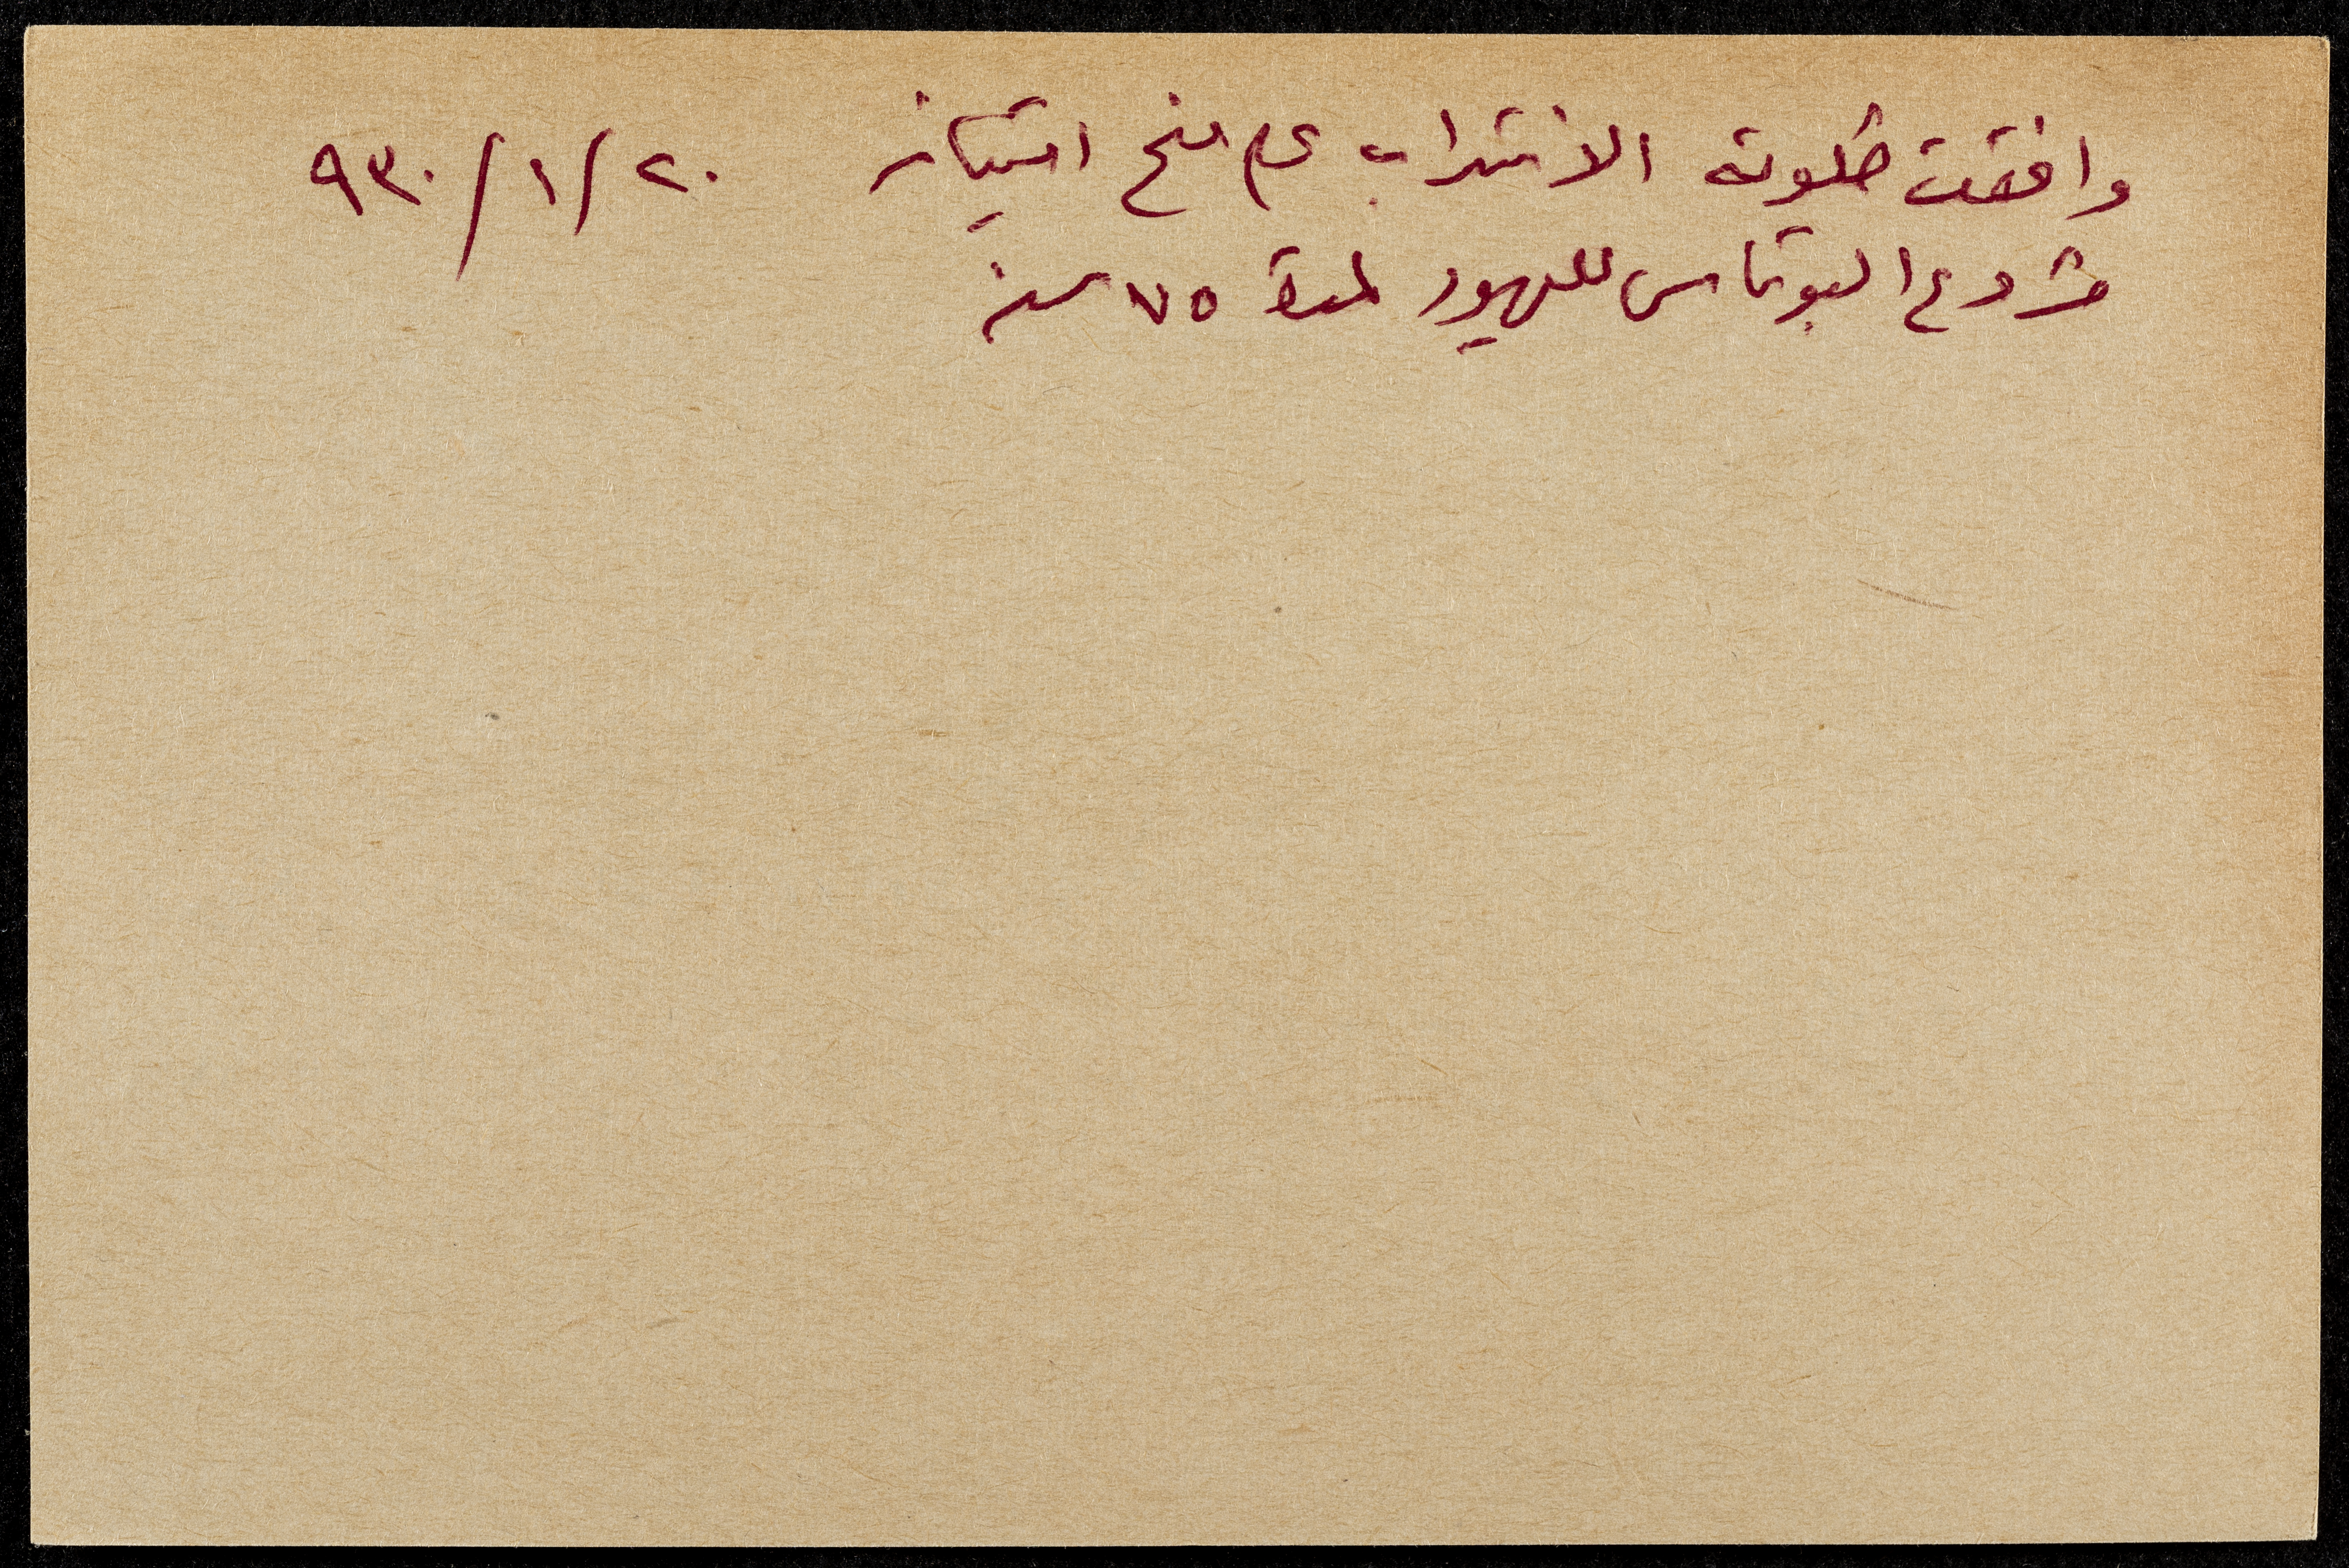 وافقت حكومة الانتداب على منح امتياز ٢٠/١/٩٣٠
مشروع البوتاس لليهود لمدة ٧٥ سنة